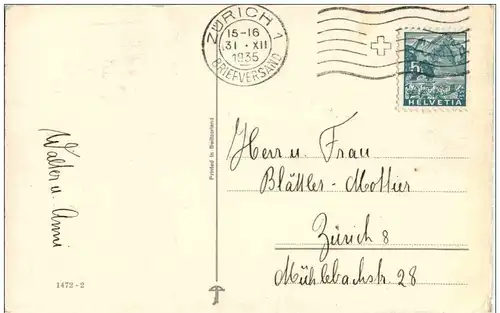 ZÜRICH 1
15-16
31. XII
1935
BRIEFVERSAND
5
HELVETIA
Printed in Switzerland
Walter u. Anni
Herr u. Frau
Blättler-Mottier
Zürich 8
Mühlebachstr. 28
1472-2